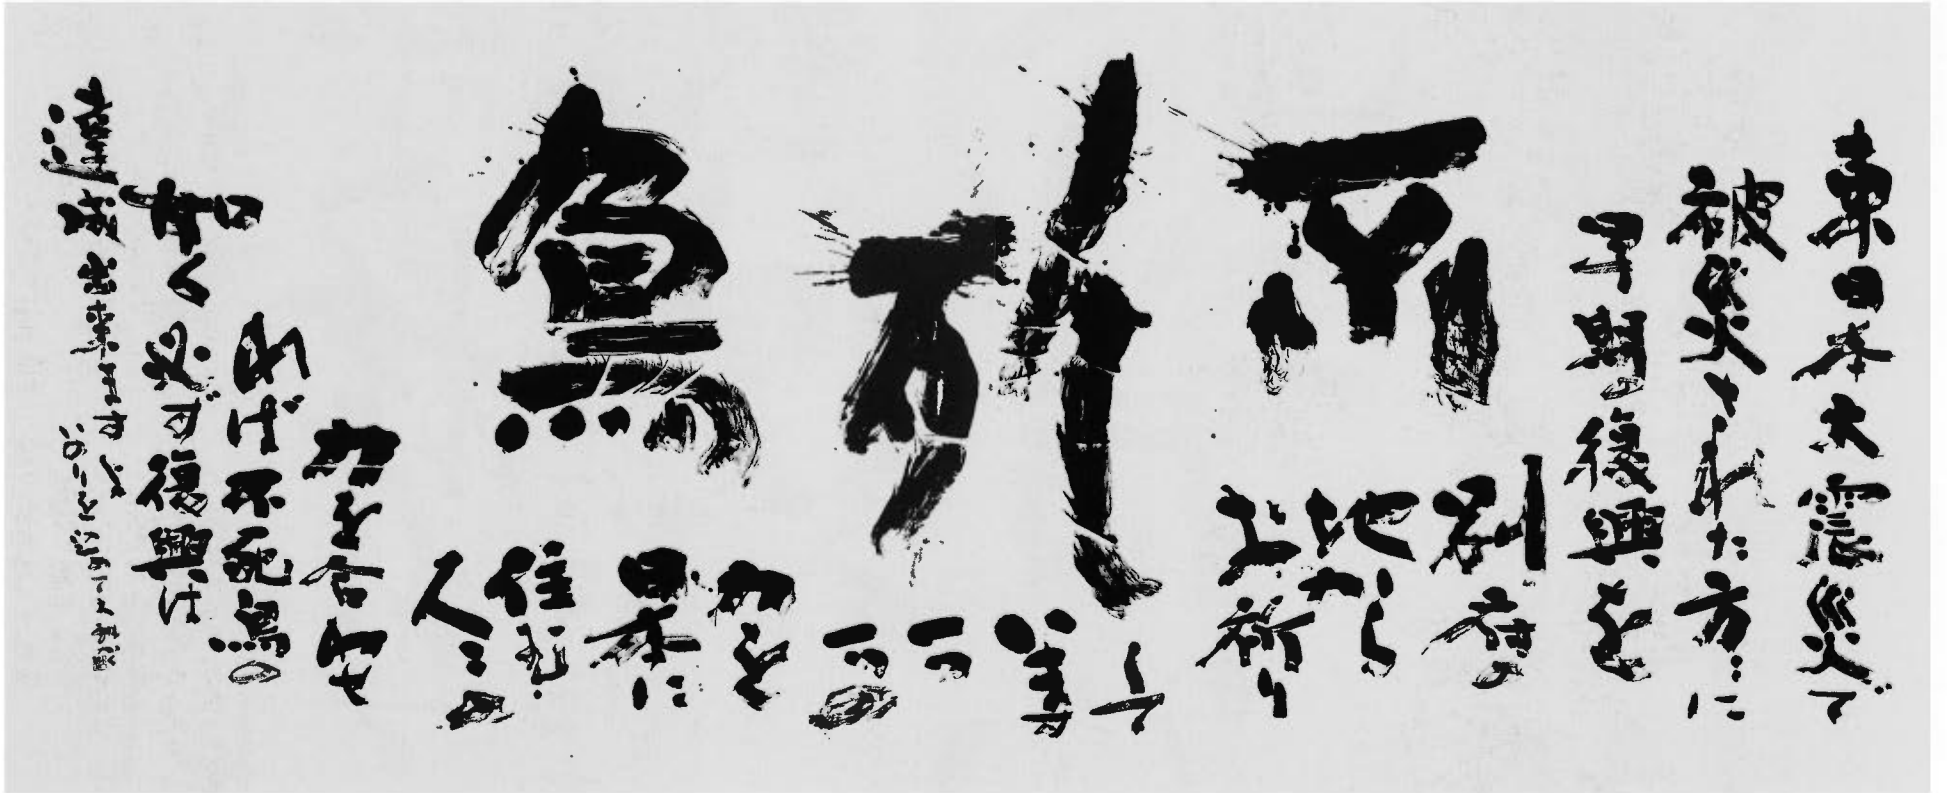 不死鳥
東日本大震災で
被災された方々に
早期の復興を
別府の
地から
お祈り
し
ます
一つ
一つの
力を
日本に
住む
人々の
力を合せ
れば不死鳥の
如く必ず復興は
達成出来ます